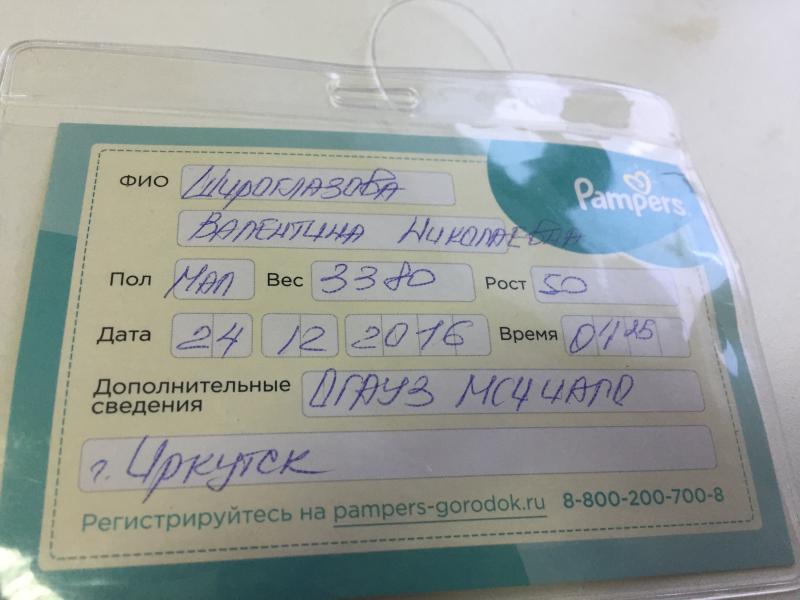 Pampers
ФИО Широглазова
Валентина Николаевна
Пол Мал Вес 3380 Рост 50
Дата 24 12 2016 Время
Дополнительные сведения ОГАУЗ
г. Иркутск
Регистрируйтесь на pampers-gorodok.ru 8-800-200-700-8